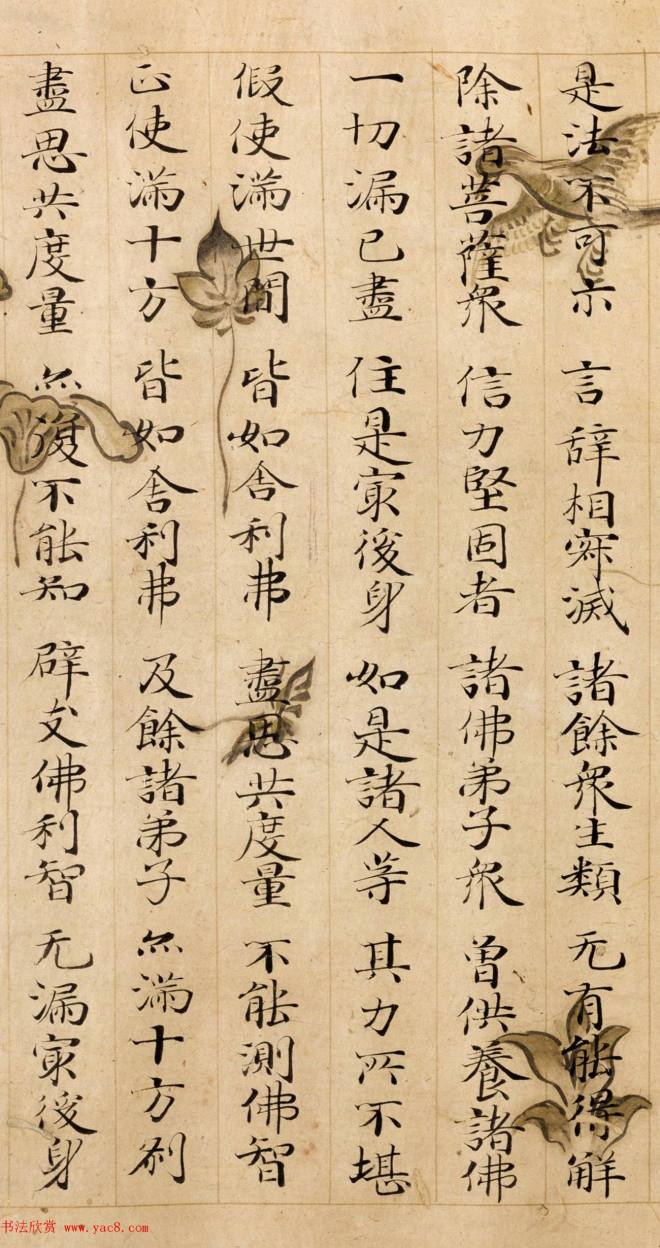 是法不可示 言辞相寂滅 諸餘衆生類 无有能得解
除諸菩薩衆 信力堅固者 諸佛弟子衆 曽供養諸佛
一切漏已盡 住是㝡後身 如是諸人等 其力所不堪
假使滿世間 皆如舎利弗 盡思共度量 不能測佛智
正使滿十方 皆如舎利弗 及餘諸弟子 亦滿十方刹
盡思共度量 亦復不能知 辟支佛利智 无漏㝡後身
书法欣赏 www.yac8.com